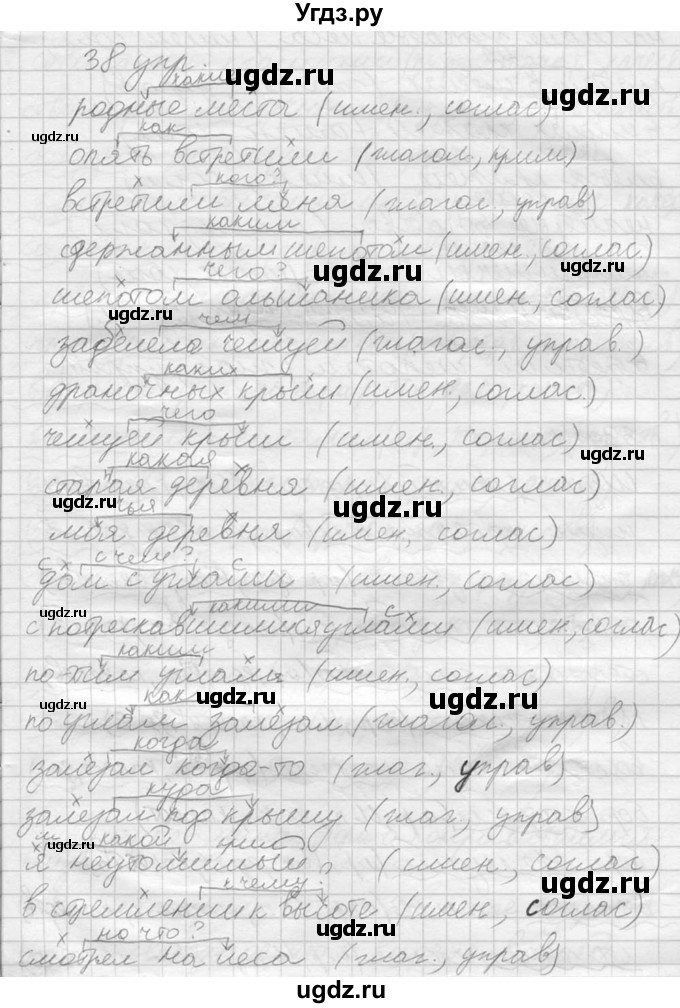 Угдз.ру
38 упр
какие
родные места (имен., соглас)
как
опять встретили (глагол., прим)
кого?
встретили меня (глагол., управ)
каким
сдержанным шепотом (имен., соглас)
чего?
шепотом ольшаника (имен, соглас)
чем
забелела чешуей (глагол., управ.)
каких
драночных крыш (имен., соглас.)
чего
чешуей крыш (имен., соглас)
какая
старая деревня (имен., соглас)
чья
моя деревня (имен, соглас)
с чем?
дом с углами (имен, соглас)
какими
с потрескавшимися углами (имен, соглас)
каким
по этим углам (имен, соглас)
как
по углам залезал (глагол., управ.)
когда
залезал когда-то (глаг., управ)
куда
залезал под крышу (глаг, управ)
какой
я неутолимый (имен, соглас)
к чему?
в стремлении к высоте (имен, соглас)
на что?
смотрел на леса (глаг., управ)
ugdz.ru